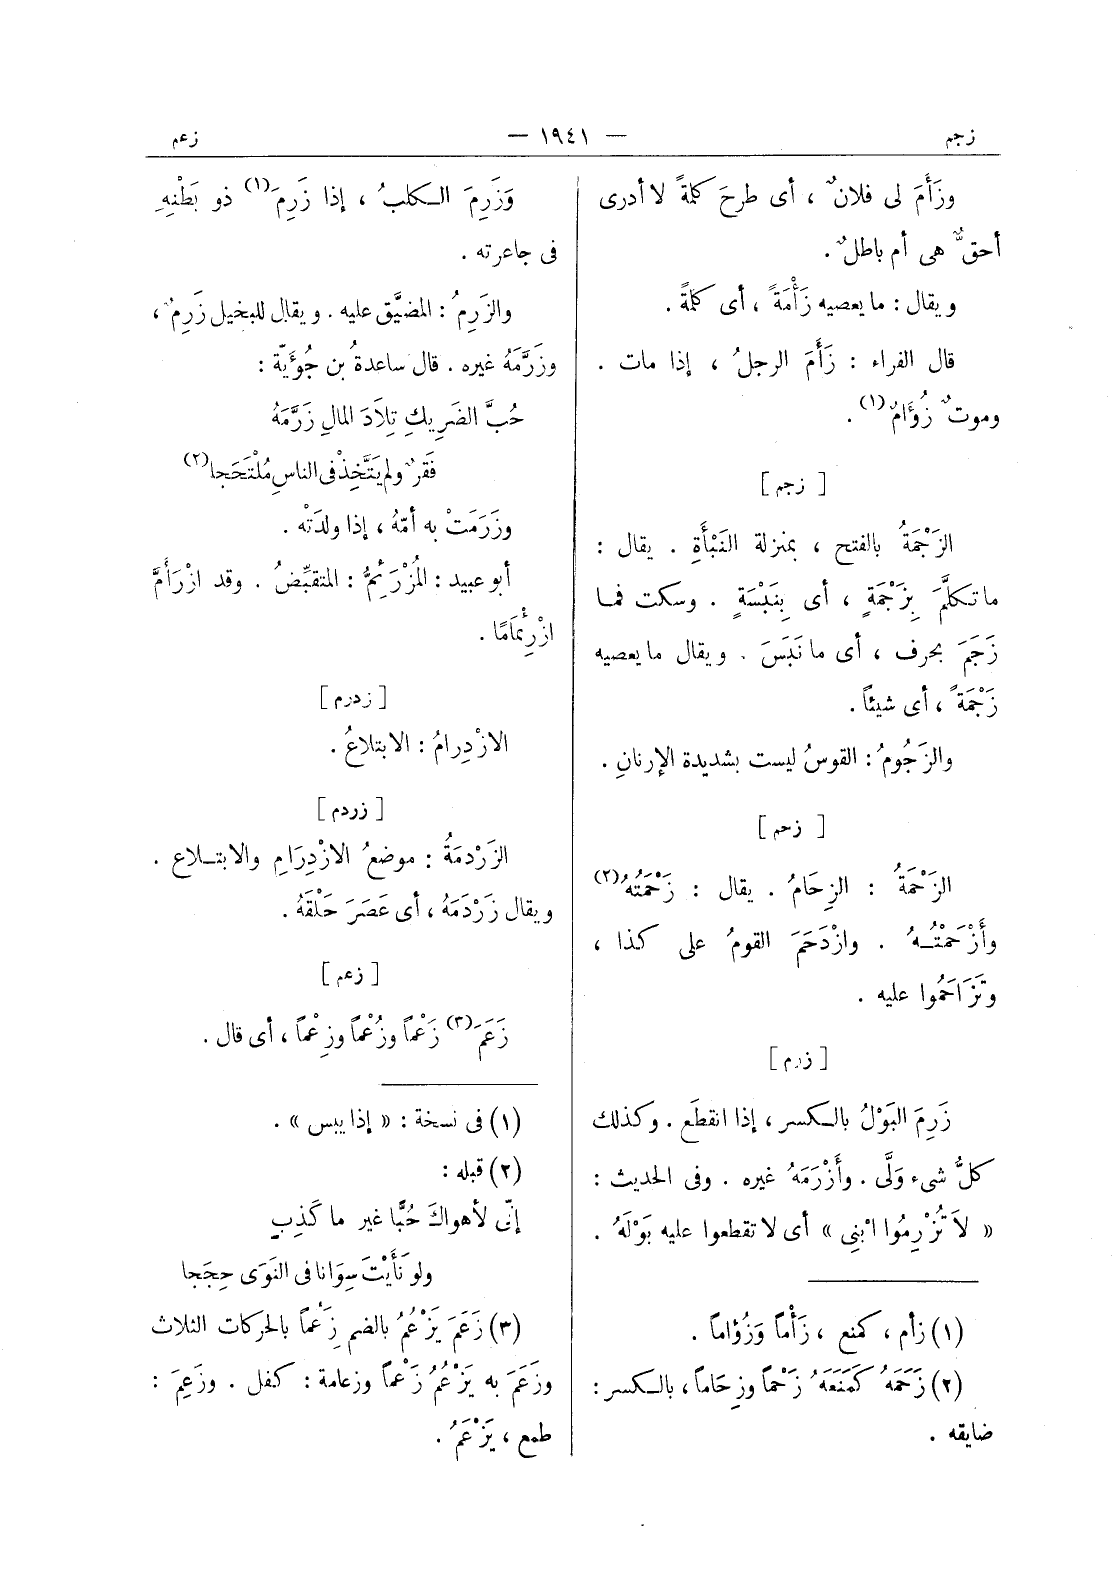 زجم — ١٩٤١ — زعم
وزَأَمَ لى فلانٌ ، أى طرحَ كلمةً لا أدرى
أحقٌّ هى أم باطلٌ .
ويقال : ما يعصيه زَأْمَةً ، أى كلمةً .
قال الفراء : زَأَمَ الرجلُ ، إذا مات .
وموتٌ زُؤَامٌ (١) .
[ زجم ]
الزَجْمَةُ بالفتح ، بمنزلة النَبْأَةِ . يقال :
ما تكلَّمَ بِزَجْمَةٍ ، أى بِنَبْسَةٍ . وسكت فما
زَجَمَ بحرف ، أى ما نَبَسَ . ويقال ما يعصيه
زَجْمَةً ، أى شيئاً .
والزَجُومُ : القوسُ ليست بشديدة الإرنانِ .
[ زحم ]
الزَحْمَةُ : الزِحَامُ . يقال : زَحَمْتُهُ (٢)
وأَزْحَمْتُهُ . وازْدَحَمَ القومُ على كذا ،
وتَزَاحَمُوا عليه .
[ زرم ]
زَرِمَ البَوْلُ بالكسر ، إذا انقطَع . وكذلك
كلُّ شىء وَلَّى . وأَزْرَمَهُ غيره . وفى الحديث :
« لاَ تُزْرِمُوا ابْنِى » أى لا تقطعوا عليه بَوْلَهُ .
(١) زأم ، كمنع ، زَأْماً وَزُؤاماً .
(٢) زَحَمَهُ كَمَنَعَهُ زَحْماً وزِحَاماً ، بالكسر :
ضايقه .
وَزَرِمَ الكلبُ ، إذا زَرِمَ (١) ذو بَطْنِهِ
فى جاعرته .
والزَرِمُ : المضيَّق عليه . ويقال للبخيل زَرِمٌ ،
وزَرَّمَهُ غيره . قال ساعدةُ بن جُؤَيَّة :
حُبَّ الضَرِيكِ تِلاَدَ المالِ زَرَّمَهُ
فَقْرٌ ولم يَتَّخِذْ فى الناسِ مُلْتَحَجا (٢)
وزَرَمَتْ به أمّهُ ، إذا ولدَتْه .
أبو عبيد : المُزْرَئِمُّ : المتقبِّضُ . وقد ازْرَأَمَّ
ازْرِئْمَامًا .
[ زدرم ]
الازْدِرامُ : الابتلاعُ .
[ زردم ]
الزَرْدمَةُ : موضعُ الازْدِرَامِ والابتلاع .
ويقال زَرْدَمَهُ ، أى عَصَرَ حَلْقَهُ .
[ زعم ]
زَعَمَ (٣) زَعْماً وزُعْماً وزِعْماً ، أى قال .
(١) فى نسخة : « إذا يبس » .
(٢) قبله :
إنّى لأهواكَ حُبًّا غير ما كَذِبِ
ولو نَأَيْتَ سِوَانا فى النَوَى حِجَجا
(٣) زَعَمَ يَزْعُمُ بالضم زِعْماً بالحركات الثلاث
وزَعَمَ به يَزْعُمُ زَعْماً وزعامة : كفل . وزَعِمَ :
طمع ، يَزْعَمُ .